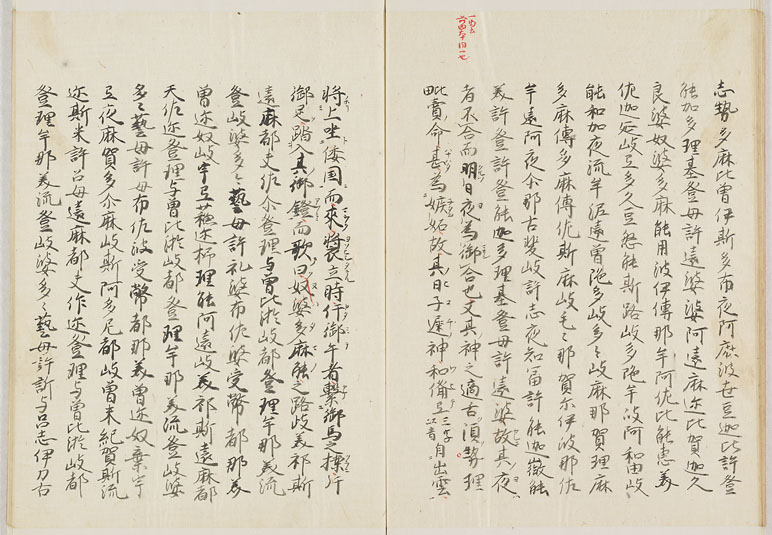 志勢多麻比曽伊斯多布夜阿麻波世豆迦比許登
能加多理基登母許遠婆婆阿遠麻尓比賀迦久
良婆奴婆多麻能用波伊傳那牟阿佐比能恵美
佐迦延岐弖多久豆怒能斯路岐多陀牟岐阿和由岐
能和加夜流牟泥遠曽陀多岐多々岐麻那賀理麻
多麻傳多麻傳佐斯麻岐毛々那賀尓伊波那佐
牟遠阿夜尓那古斐岐許志夜知冨許能迦微能
美許登許登能迦多理基登母許遠婆故其夜
者不合而明日夜為御合也又其神之適后須勢理
毗賣命甚為嫉妬故其日子遅神和備弖三字以音自出雲
将上坐倭国而来装立時片御手者繋御馬之鞍片
御足踏入其御鐙而歌曰奴婆多麻能久路岐美祁斯
遠麻都夫佐尓登理与曽比淤岐都登理牟那美流
登岐婆多々藝母許礼婆布佐婆受幣都那美
曽迩奴岐宇弖蘇迩杼理能阿遠岐美祁斯遠麻都
夫佐迩登理与曽比淤岐都登理牟那美流登岐婆
多々藝母許母布佐波受幣都那美曽迩奴棄宇
弖夜麻賀多尓麻岐斯阿多尼都岐曽米紀賀斯流
迩斯米許呂母遠麻都夫佐迩登理与曽比淤岐都
登理牟那美流登岐婆多々藝母許斯与呂志伊刀古